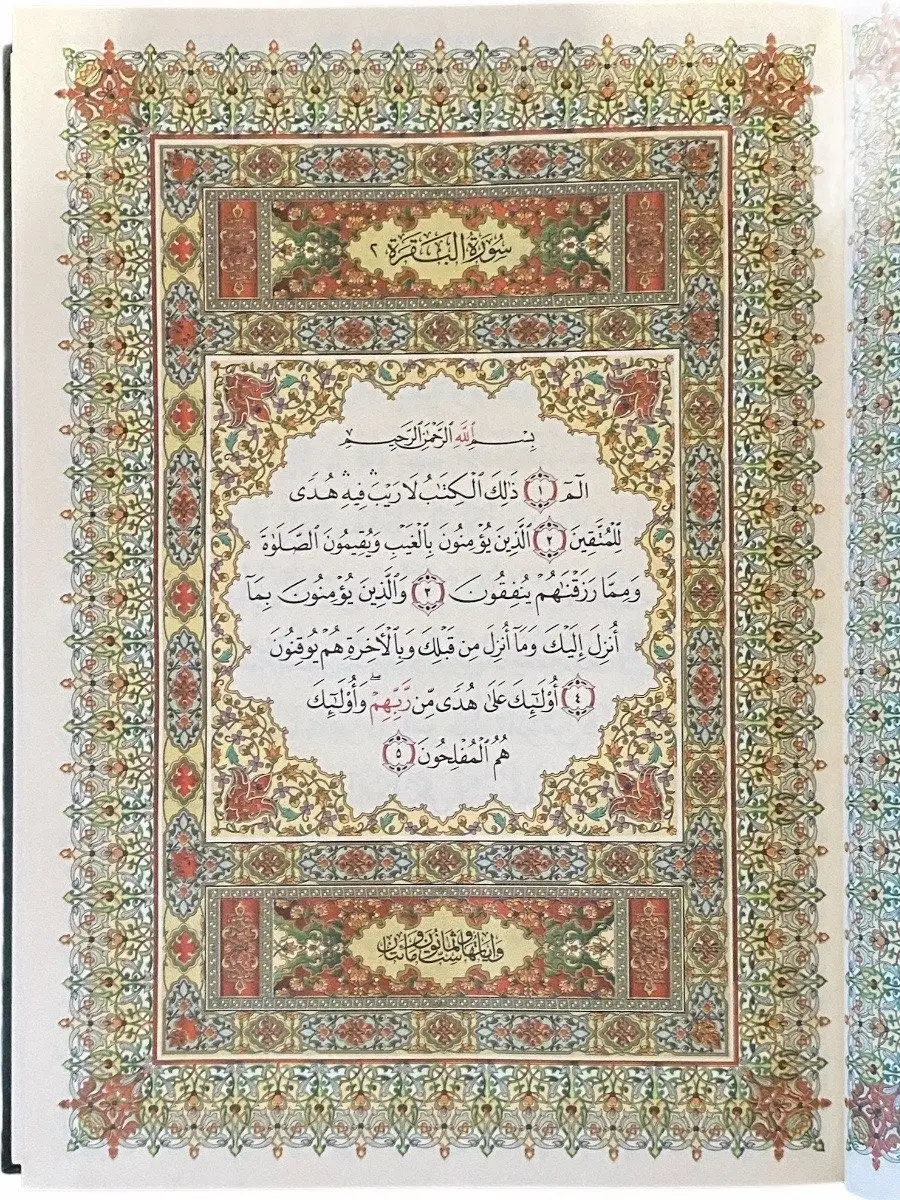 سُورَةُ الْبَقَرَةِ ٢
بِسْمِ ٱللَّهِ ٱلرَّحْمَٰنِ ٱلرَّحِيمِ
الٓمٓ ١ ذَٰلِكَ ٱلْكِتَٰبُ لَا رَيْبَ ۛ فِيهِ ۛ هُدًى
لِّلْمُتَّقِينَ ٢ ٱلَّذِينَ يُؤْمِنُونَ بِٱلْغَيْبِ وَيُقِيمُونَ ٱلصَّلَوٰةَ
وَمِمَّا رَزَقْنَٰهُمْ يُنفِقُونَ ٣ وَٱلَّذِينَ يُؤْمِنُونَ بِمَآ
أُنزِلَ إِلَيْكَ وَمَآ أُنزِلَ مِن قَبْلِكَ وَبِٱلْأَخِرَةِ هُمْ يُوقِنُونَ
٤ أُو۟لَٰٓئِكَ عَلَىٰ هُدًى مِّن رَّبِّهِمْ ۖ وَأُو۟لَٰٓئِكَ
هُمُ ٱلْمُفْلِحُونَ ٥
وآياتها ست وثمانون ومائتان